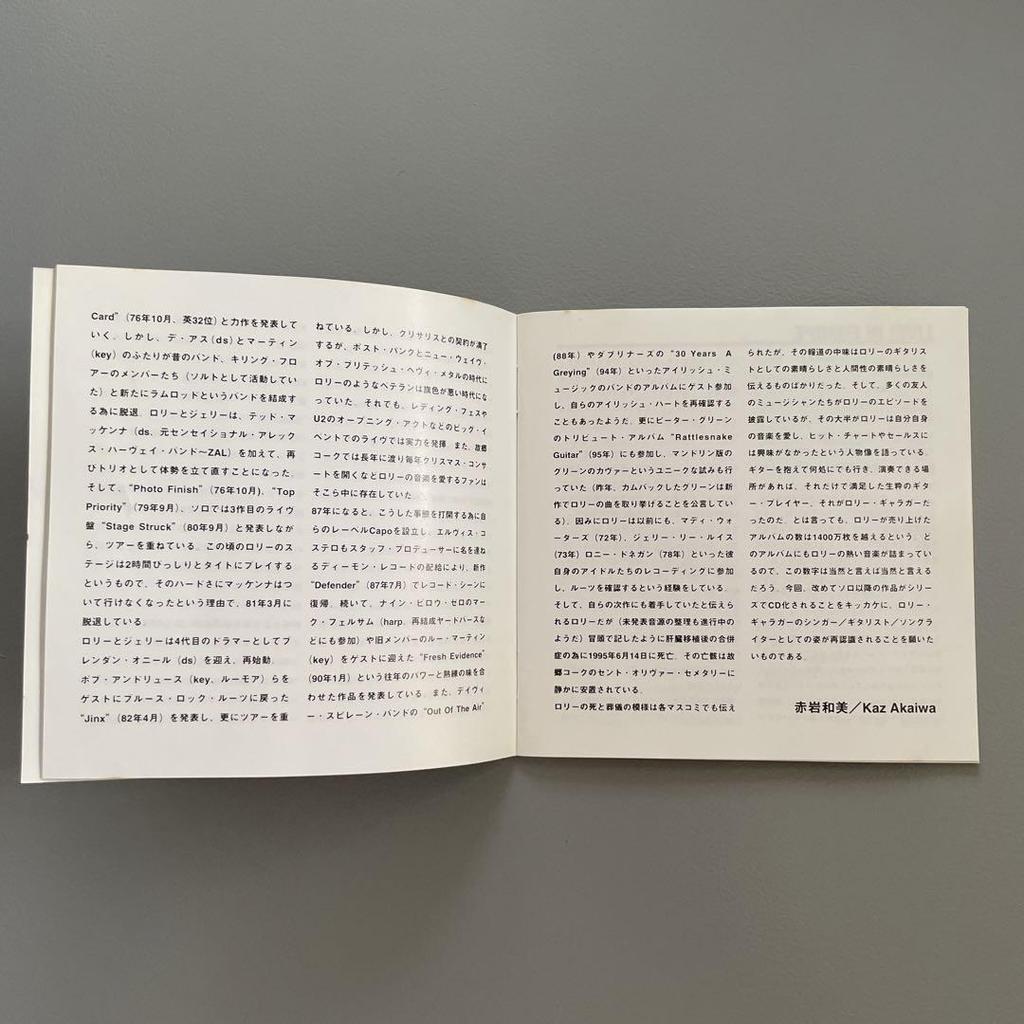 Card"（76年10月、英32位）と力作を発表して
いく。しかし、デ・アス(ds)とマーティン
(key）のふたりが昔のバンド、キリング・フロ
アーのメンバーたち（ソルトとして活動してい
た）と新たにラムロッドというバンドを結成す
る為に脱退。ロリーとジェリーは、テッド・マ
ッケンナ（ds、元センセイショナル・アレック
ス・ハーヴェイ・バンド〜ZAL）を加えて、再
びトリオとして体勢を立て直すことになった。
そして、"Photo Finish"（76年10月)、"Top
Priority"（79年9月）、ソロでは3作目のライヴ
盤 "Stage Struck"（80年9月）と発表しなが
ら、ツアーを重ねている。この頃のロリーのス
テージは2時間びっしりとタイトにプレイする
というもので、そのハードさにマッケンナはつ
いて行けなくなったという理由で、81年3月に
脱退している。
ロリーとジェリーは4代目のドラマーとしてブ
レンダン・オニール（ds）を迎え、再始動。
ボブ・アンドリュース（key、ルーモア）らを
ゲストにブルース・ロック・ルーツに戻った
"Jinx"（82年4月）を発表し、更にツアーを重
ねている。しかし、クリサリスとの契約が満了
するが、ポスト・パンクとニュー・ウェイヴ・
オブ・ブリテッシュ・ヘヴィ・メタルの時代に
ロリーのようなベテランは旗色が悪い時代にな
っていた。それでも、レディング・フェスや
U2のオープニング・アクトなどのビッグ・イ
ベントでのライヴでは実力を発揮。また、故郷
コークでは長年に渡り毎年クリスマス・コンサ
ートを開くなどロリーの音楽を愛するファンは
そこら中に存在していた。
87年になると、こうした事態を打開する為に自
らのレーベルCapoを設立し、エルヴィス・コ
ステロもスタッフ・プロデューサーに名を連ね
るディーモン・レコードの配給により、新作
"Defender"（87年7月）でレコード・シーンに
復帰。続いて、ナイン・ビロウ・ゼロのマー
ク・フェルサム（harp、再結成ヤードバースな
どにも参加）や旧メンバーのルー・マーティン
(key）をゲストに迎えた "Fresh Evidence"
（90年1月）という往年のパワーと熟練の味を合
わせた作品を発表している。また、デイヴィ
ー・スピレーン・バンドの "Out Of The Air"
(88年）やダブリナーズの "30 Years A
Greying"（94年）といったアイリッシュ・ミ
ュージックのバンドのアルバムにゲスト参加
し、自らのアイリッシュ・ハートを再確認する
こともあったようだ。更にピーター・グリーン
のトリビュート・アルバム "Rattlesnake
Guitar"（95年）にも参加し、マンドリン版の
グリーンのカヴァーというユニークな試みも行
っていた（昨年、カムバックしたグリーンは新
作でロリーの曲を取り挙げることを公言してい
る）。因みにロリーは以前にも、マディ・ウォ
ーターズ（72年）、ジェリー・リー・ルイス
(73年）ロニー・ドネガン（78年）といった彼
自身のアイドルたちのレコーディングに参加
し、ルーツを確認するという経験をしている。
そして、自らの次作にも着手していたと伝えら
れるロリーだが（未発表音源の整理も進行中の
ようだ）冒頭で記したように肝臓移植後の合併
症の為に1995年6月14日に死亡。その亡骸は故
郷コークのセント・オリヴァー・セメタリーに
静かに安置されている。
ロリーの死と葬儀の模様は各マスコミでも伝え
られたが、その報道の中味はロリーのギタリス
トとしての素晴らしさと人間性の素晴らしさを
伝えるものばかりだった。そして、多くの友人
のミュージシャンたちがロリーのエピソードを
披露しているが、その大半がロリーは自分自身
の音楽を愛し、ヒット・チャートやセールスに
は興味がなかったという人物像を語っている。
ギターを抱えて何処にでも行き、演奏できる場
所があれば、それだけで満足した生粋のギタ
ー・プレイヤー、それがロリー・ギャラガーだ
ったのだ。とは言っても、ロリーが売り上げた
アルバムの数は1400万枚を越えるという。ど
のアルバムにもロリーの熱い音楽が詰まってい
るので、この数字は当然と言えば当然と言える
だろう。今回、改めてソロ以降の作品がシリー
ズでCD化されることをキッカケに、ロリー・
ギャラガーのシンガー／ギタリスト／ソングラ
イターとしての姿が再認識されることを願いた
いものである。
赤岩和美／Kaz Akaiwa